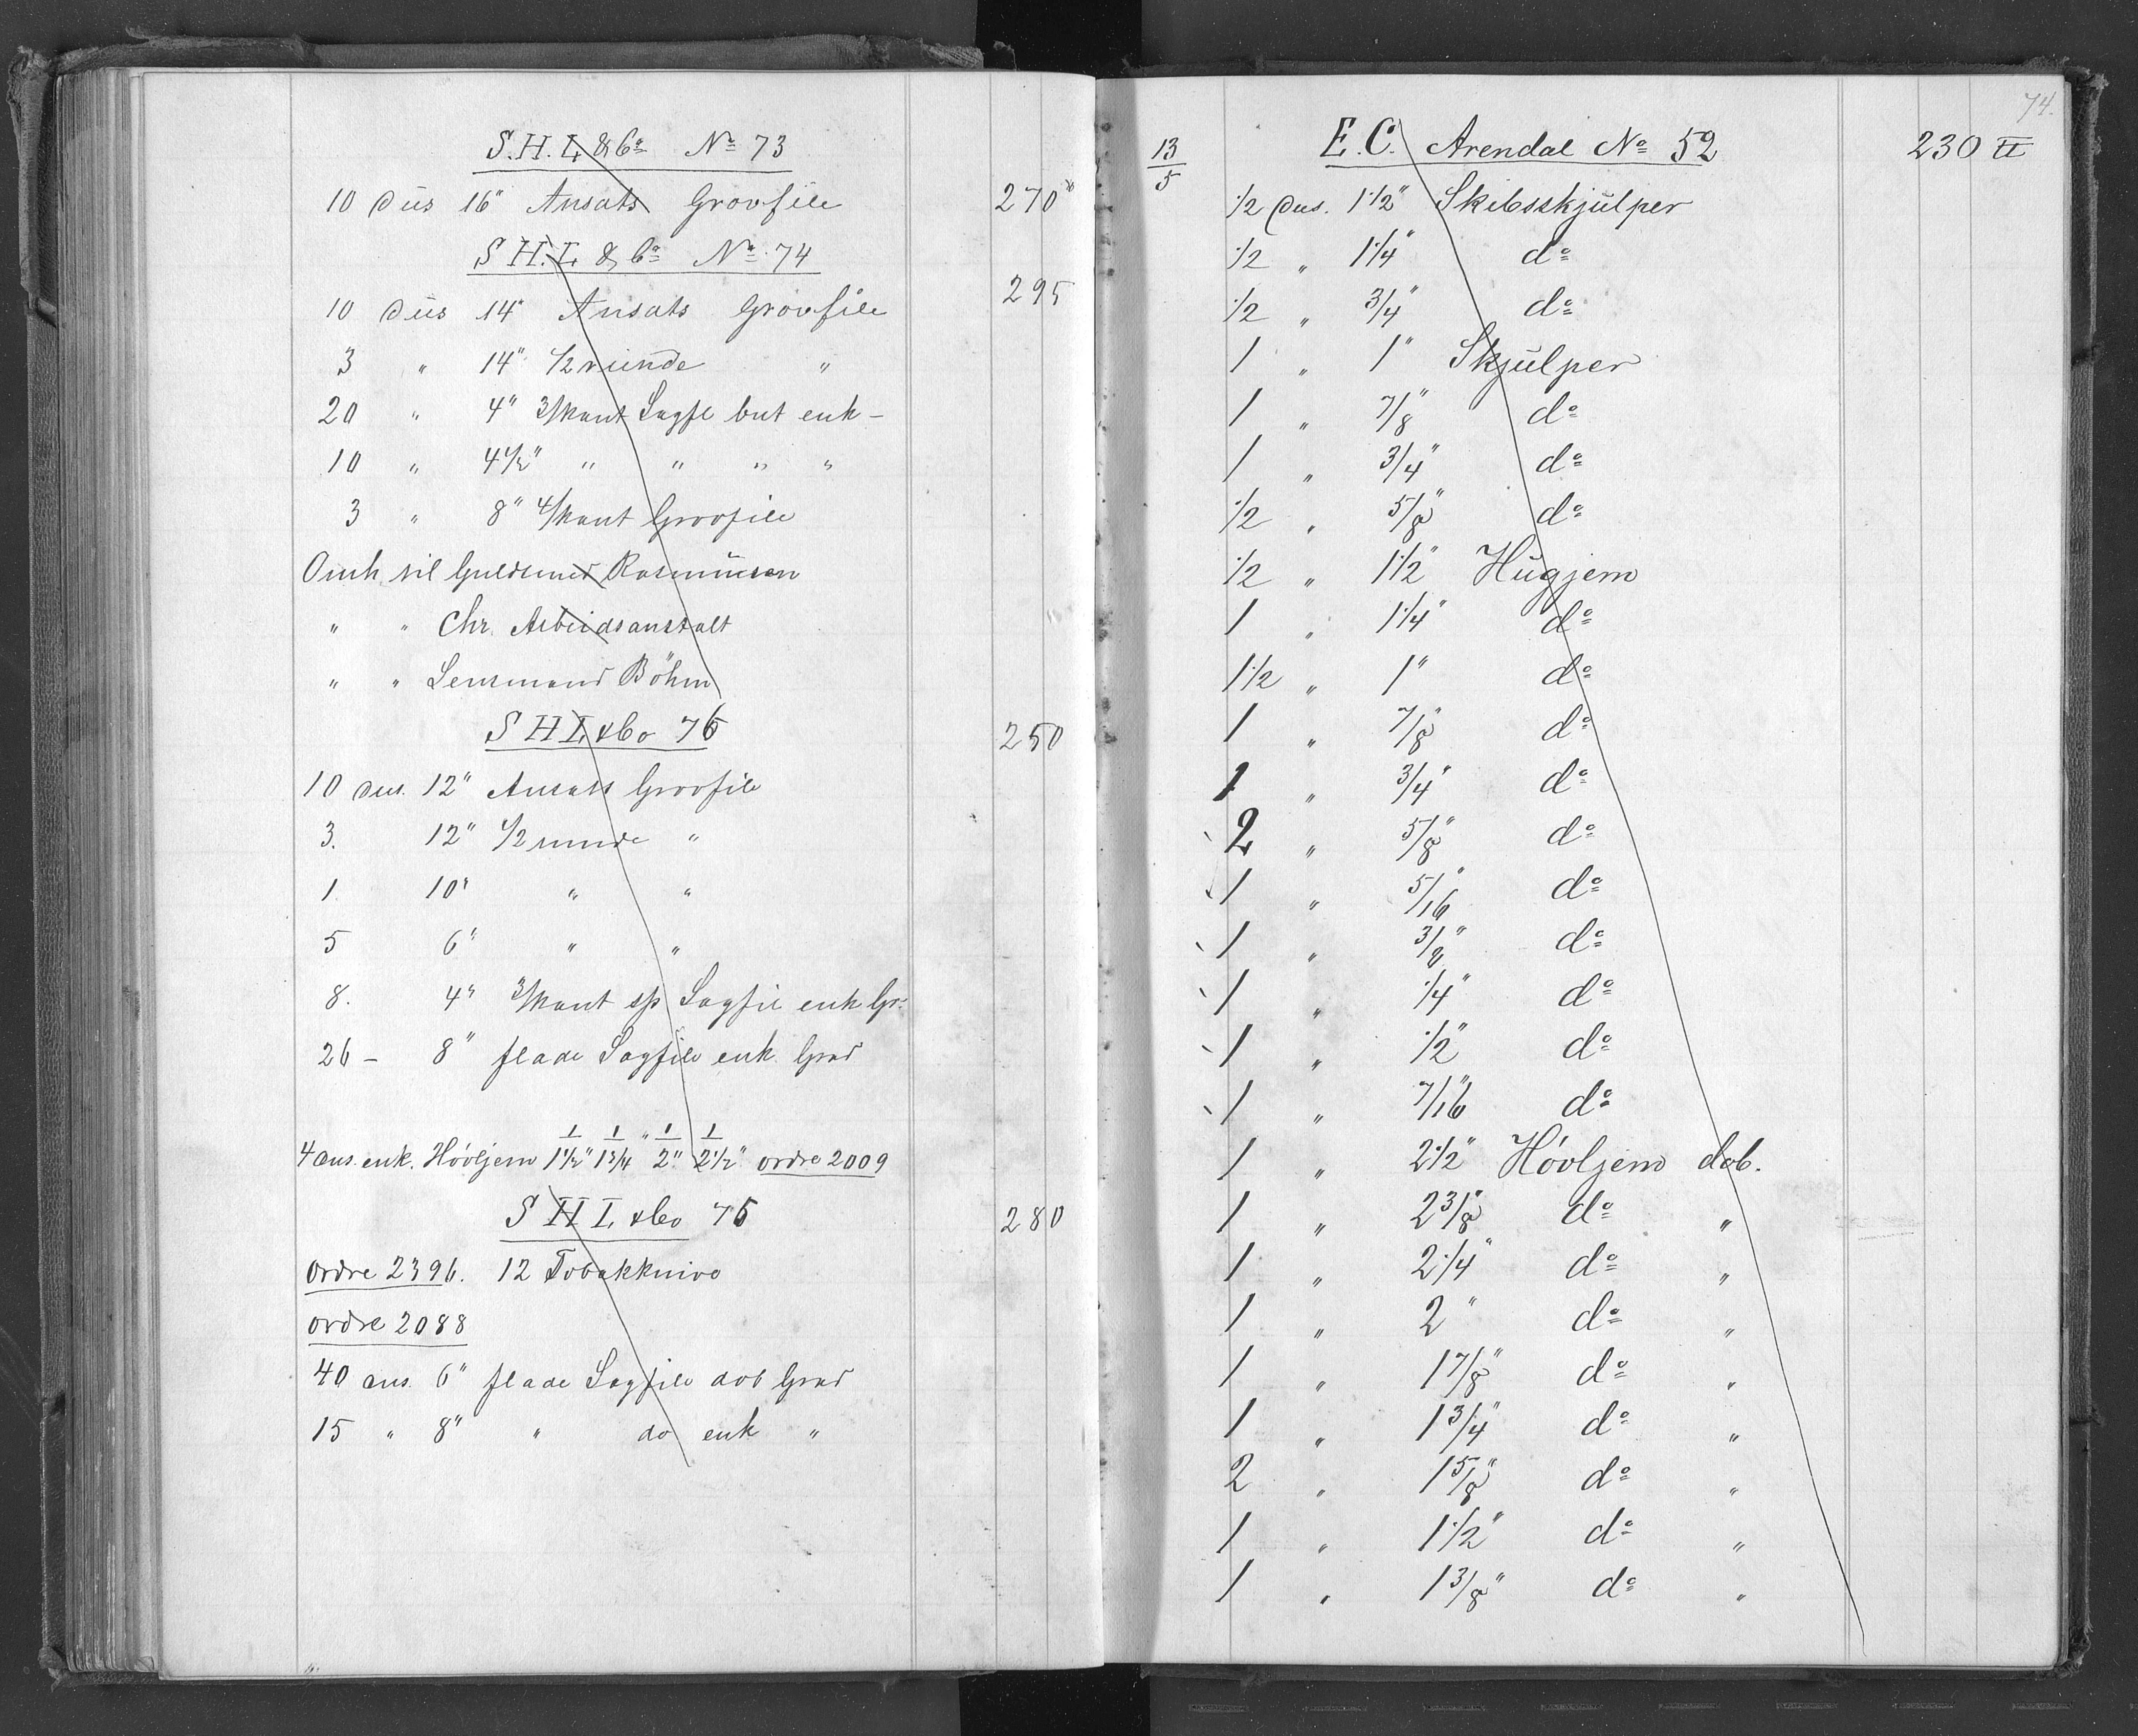 S.H.L & Co No 73
10 dus 16" Ansats Grovfile 270
S H.L & Co No 74
295
10 dus 14" Ansats Grovfile
3 " 14" 1/2 runde "
20 " 4" 3/kant Sagfl but enk -
10 " 4 1/2" " " " "
3 " 8" 4/kant Grovfile
Omh til Guldsmed Rasmussen
" " Chr. Arbeidsanstalt
" " Lensmand Böhm
S H L & Co 75 250
10 dus. 12" Ansats Grovfile
3. 12" 1/2 runde "
1 10" " "
5 6" " "
8. 4" 3/kant sp Sagfil enk Gr.
26 - 8" flade Sagfile enk Grad
4 dus. enk. Hövljern 1/1 1/2" 1/1 3/4" 1/2" 1/2 1/2" ordre 2009
S H L & Co 76 280
Ordre 2396. 12 Tobakknive
ordre 2088
40 dus. 6" flade Sagfile dob Grad
15 " 8" " do enk "
74.
13/5 E.C. Arendal No 52 230 tt
1/2 Dus. 1 1/2" Skibsskjulper
1/2 " 1 1/4" do
1/2 " 3/4" do
1 " 1" Skjulper
1 " 7/8" do
1 " 3/4" do
1/2 " 5/8" do
1/2 " 1 1/2" Hugjern
1 " 1 1/4" do
1 1/2 " 1" do
1 " 7/8" do
1 " 3/4" do
2 " 5/8" do
1 " 5/16" do
1 " 3/8" do
1 " 1/4" do
1 " 1/2" do
1 " 7/16" do
1 " 2 1/2" Hövljern dob.
1 " 2 3/8" do "
1 " 2 1/4" do "
1 " 2" do "
1 " 1 7/8" do "
1 " 1 3/4" do "
2 " 1 5/8" do "
1 " 1 1/2" do "
1 " 1 3/8" do "